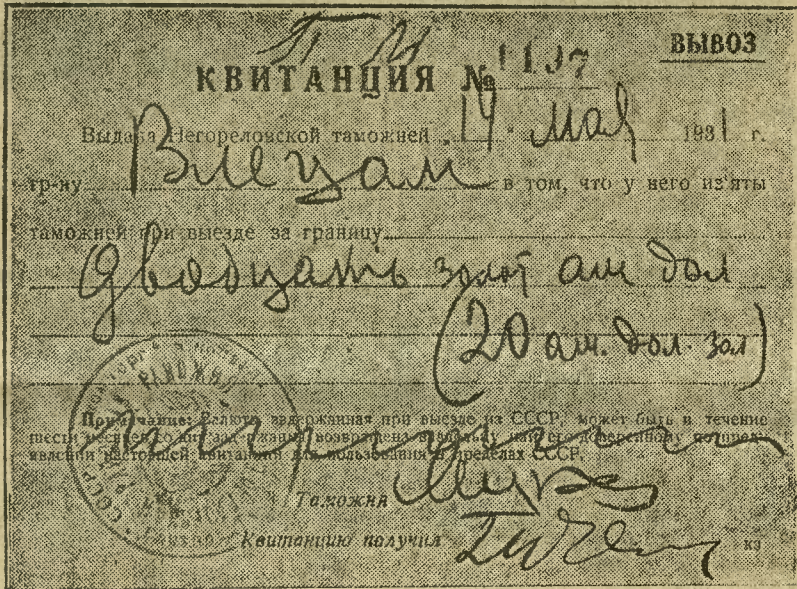 ВЫВОЗ
КВИТАНЦИЯ № 1197
Выдана Негореловской таможней „19“ мая 1931 г.
гр-ну в том, что у него из'яты
таможней при выезде за границу
двадцать золот ам дол
(20 ам. дол. зол)
Примечание: Валюта задержанная при выезде из СССР, может быть в течение
шести месяцев со дня задержания возвращена владельцу или его доверенному по пред'-
явлении настоящей квитанции для пользования в пределах СССР.
Таможня
Квитанцию получил